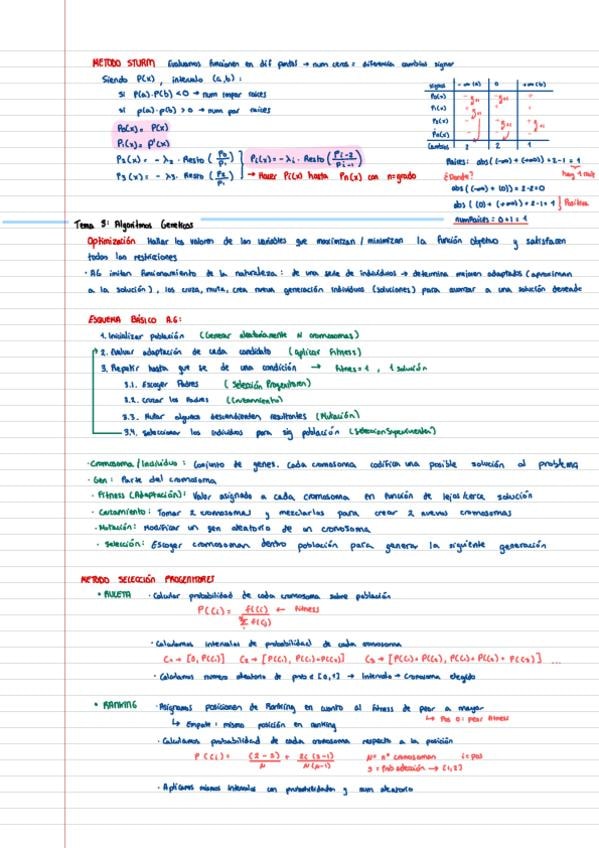 METODO STURM Evaluamos funciones en dif puntos → num ceros = diferencia cambios signo
Siendo P(x), intervalo (a,b):
si P(a)·P(b) < 0 → num impar raíces
si p(a)·p(b) > 0 → num par raíces
P0(x) = P(x)
P1(x) = P'(x)
P2(x) = -λ2 · Resto (P0/P1)
P3(x) = -λ3 · Resto (P1/P2)
Pi(x) = -λi · Resto (Pi-2/Pi-1)
→ Hacer Pi(x) hasta Pn(x) con n=grado
signos -∞ (a) 0 +∞ (b)
P0(x) - - +
P1(x) + + +
P2(x) - -
Pn(x) +
Cambios 2 2 1
Raíces: abs((-∞) + (+∞)) = 2-1 = 1
hay 1 raíz
¿Donde?
abs((-∞) + (0)) = 2-2=0
abs((0) + (+∞)) = 2-1=1 } Positiva
numRaices = 0+1 = 1
Tema 3: Algoritmos Geneticos
Optimización Hallar los valores de las variables que maximizan / minimizan la función objetivo y satisfacen
todas las restricciones
· AG imitan funcionamiento de la naturaleza: de una serie de individuos → determina mejores adaptados (aproximan
a la solución), los cruza, muta, crea nueva generación individuos (soluciones) para avanzar a una solución deseada
ESQUEMA BÁSICO A.G:
1. Inicializar población (Generar aleatoriamente N cromosomas)
2. Evaluar adaptación de cada candidato (aplicar Fitness)
3. Repetir hasta que se de una condición → fitness = 1, 1 solución
3.1. Escoger Padres (Selección Progenitores)
3.2. Cruzar los Padres (Cruzamiento)
3.3. Mutar algunos descendientes resultantes (Mutación)
3.4. Seleccionar los individuos para sig población (Selección Supervivientes)
· Cromosoma / Individuo: Conjunto de genes. Cada cromosoma codifica una posible solución al problema
· Gen: Parte del cromosoma
· Fitness (Adaptación): Valor asignado a cada cromosoma en función de lejos/cerca solución
· Cruzamiento: Tomar 2 cromosomas y mezclarlos para crear 2 nuevos cromosomas
· Mutación: Modificar un gen aleatorio de un cromosoma
· Selección: Escoger cromosomas dentro población para generar la siguiente generación
METODO SELECCIÓN PROGENITORES
• RULETA · Calcular probabilidad de cada cromosoma sobre población
P(Ci) = f(Ci) / Σ f(Cj) ← Fitness
· Calculamos intervalos de probabilidad de cada cromosoma
C1 → [0, P(C1)] C2 → [P(C1), P(C1)+P(C2)] C3 → [P(C1)+P(C2), P(C1)+P(C2)+P(C3)] ...
· Calculamos numero aleatorio de prob ∈ [0,1] → Intervalo → Cromosoma elegido
• RANKING · Asignamos posiciones de Ranking en cuanto al fitness de peor a mayor
↳ Empate: misma posición en ranking ↳ Pos 0: peor fitness
· Calculamos probabilidad de cada cromosoma respecto a la posición
P(Ci) = (2-s)/N + 2i(s-1)/N(N-1) N = nº cromosomas i = pos
s = Prob selección → [1,2]
· Aplicamos mismos intervalos con probabilidades y num aleatorio